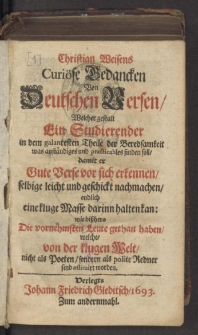 Christian Weisens
Curiöse Gedancken
Von
Deutschen Versen/
Welcher gestalt
Ein Studierender
in dem galantesten Theile der Beredsamkeit
was anständiges und practicables finden soll/
damit er
Gute Verse vor sich erkennen/
selbige leicht und geschickt nachmachen/
endlich
eine kluge Masse darinn halten kan:
wie bißhero
Die vornehmsten Leute gethan haben/
welche
von der klugen Welt/
nicht als Poeten/ sondern als polite Redner
sind æstimirt worden.
Verlegts
Johann Friedrich Gleditsch/ 1693.
Zum andernmahl.